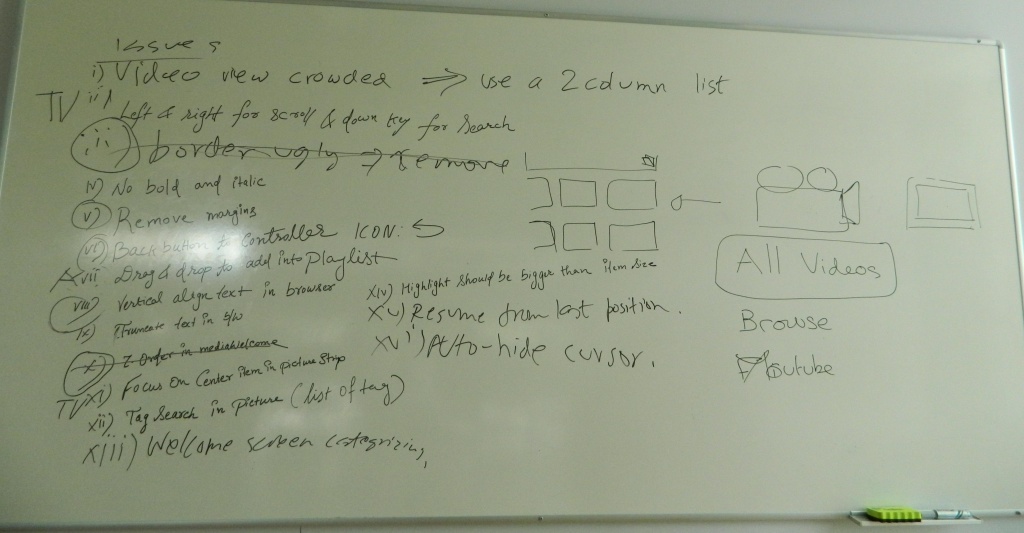 Issues
i) Video view crowded ⇒ use a 2 column list
TV ii) Left & right for scroll & down key for search
iii) border ugly → remove
iv) No bold and italic
v) Remove margins
vi) Back button to controller ICON:
A vii Drag & drop to add into playlist
viii) Vertical align text in browser
ix) Truncate text in s/w
x) Z Order in mediawelcome
TV xi) Focus On Center item in picture strip
xii) Tag Search in picture (list of tag)
xiii) Welcome screen categorizing,
xiv) Highlight should be bigger than item size
xv) Resume from last position.
xvi) Auto-hide cursor.
All Videos
Browse
Youtube